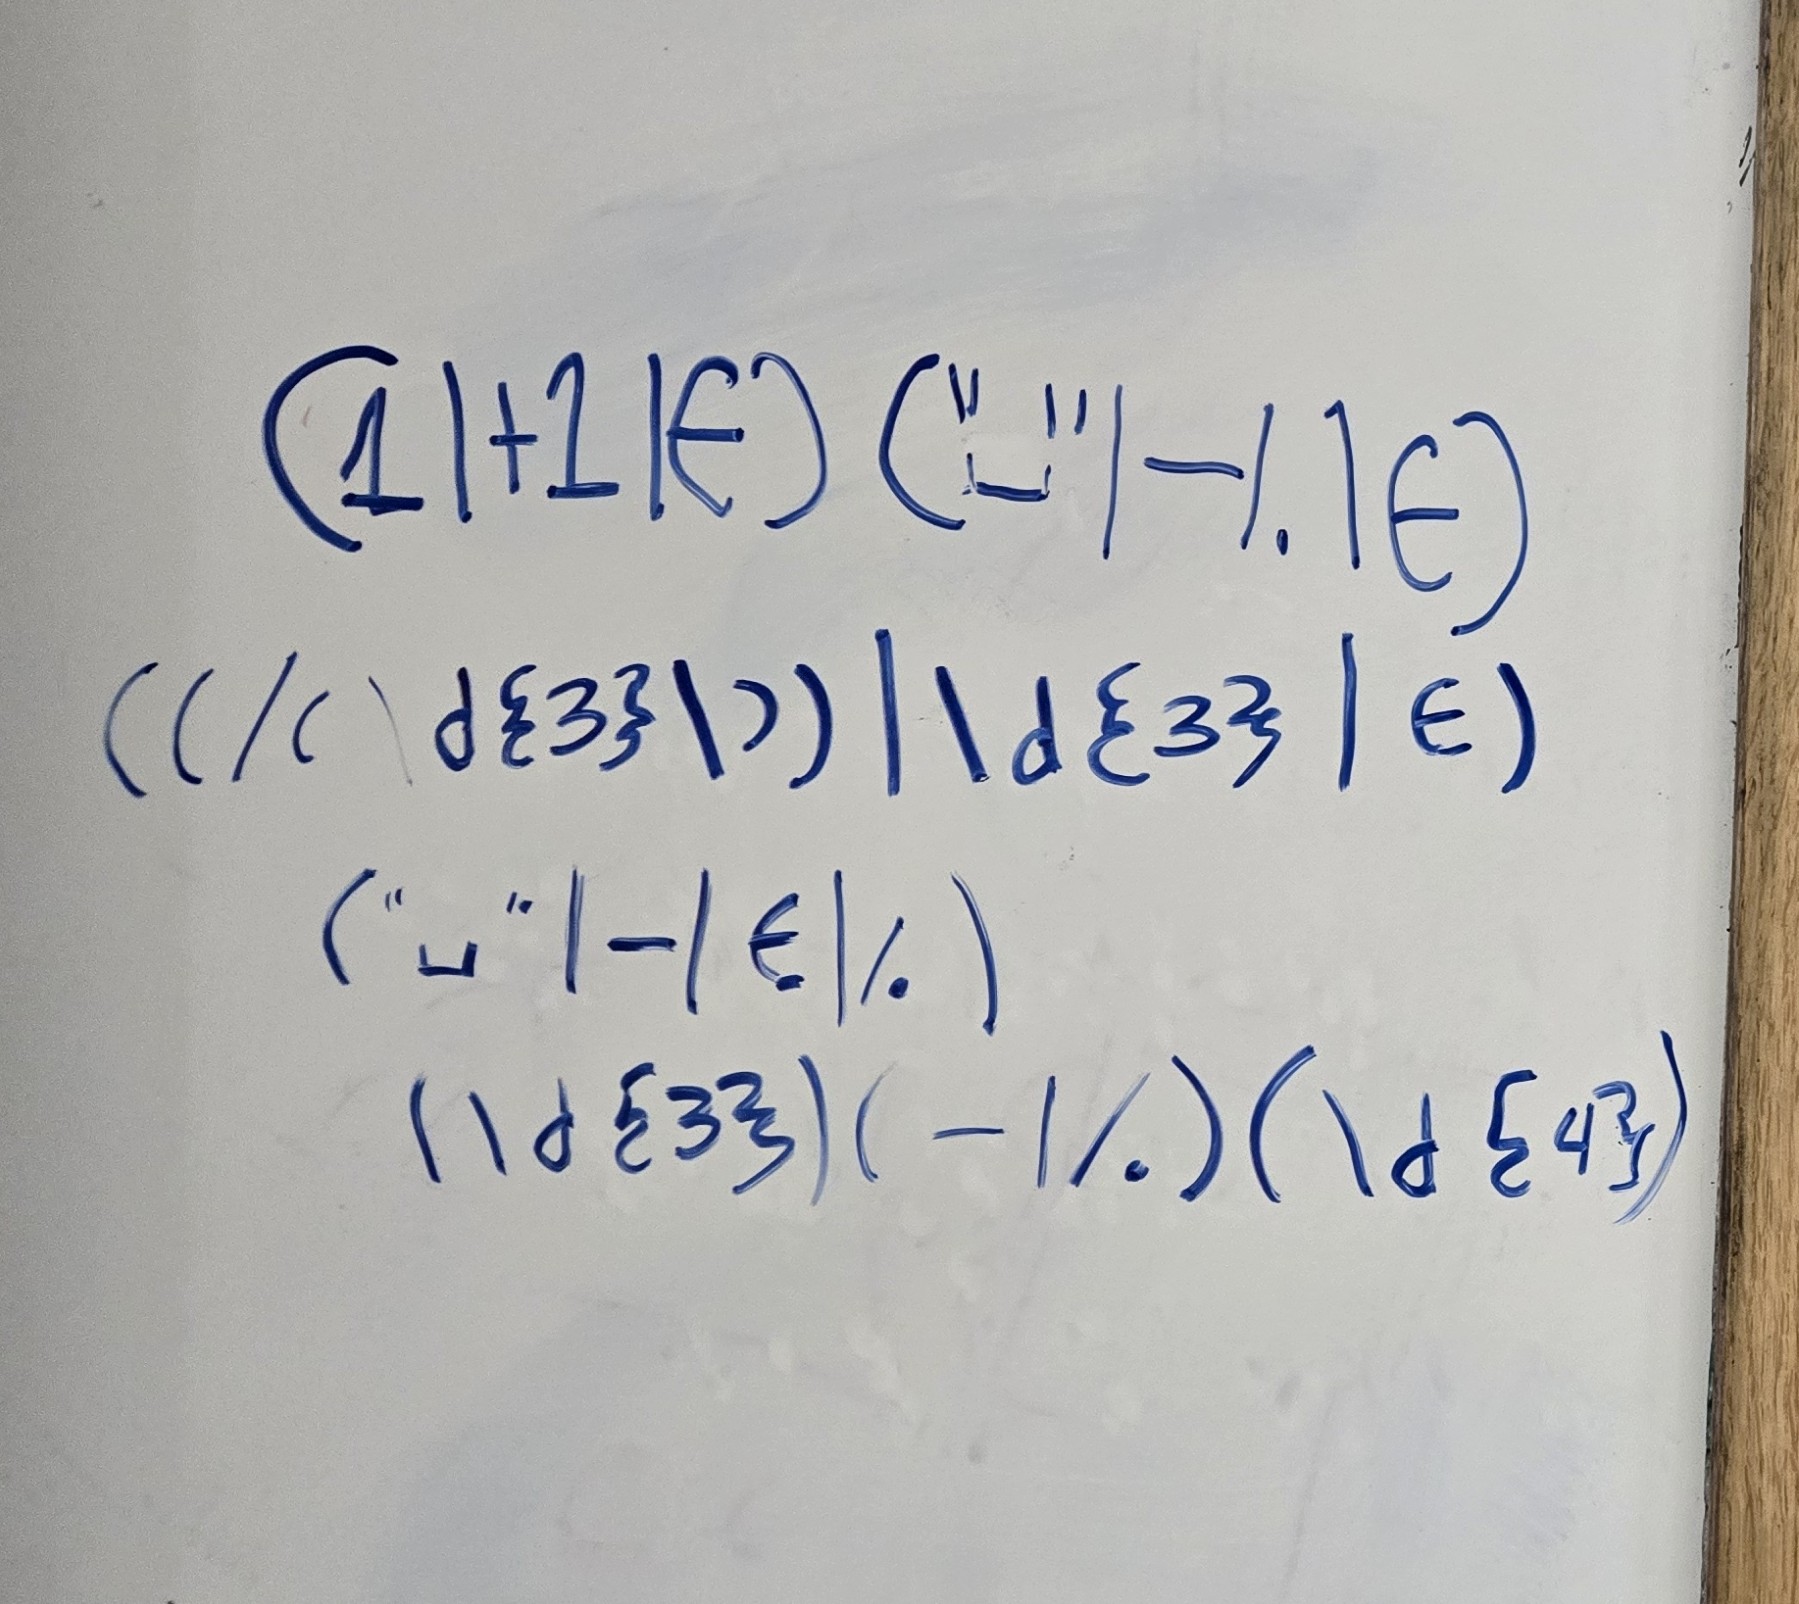 (1|+1|ϵ)("␣"|-/.|ϵ)
((/(\d{3}\))|\d{3}|ϵ)
("␣"|-|ϵ|/.)
(\d{3})(-|/.)(\d{4})